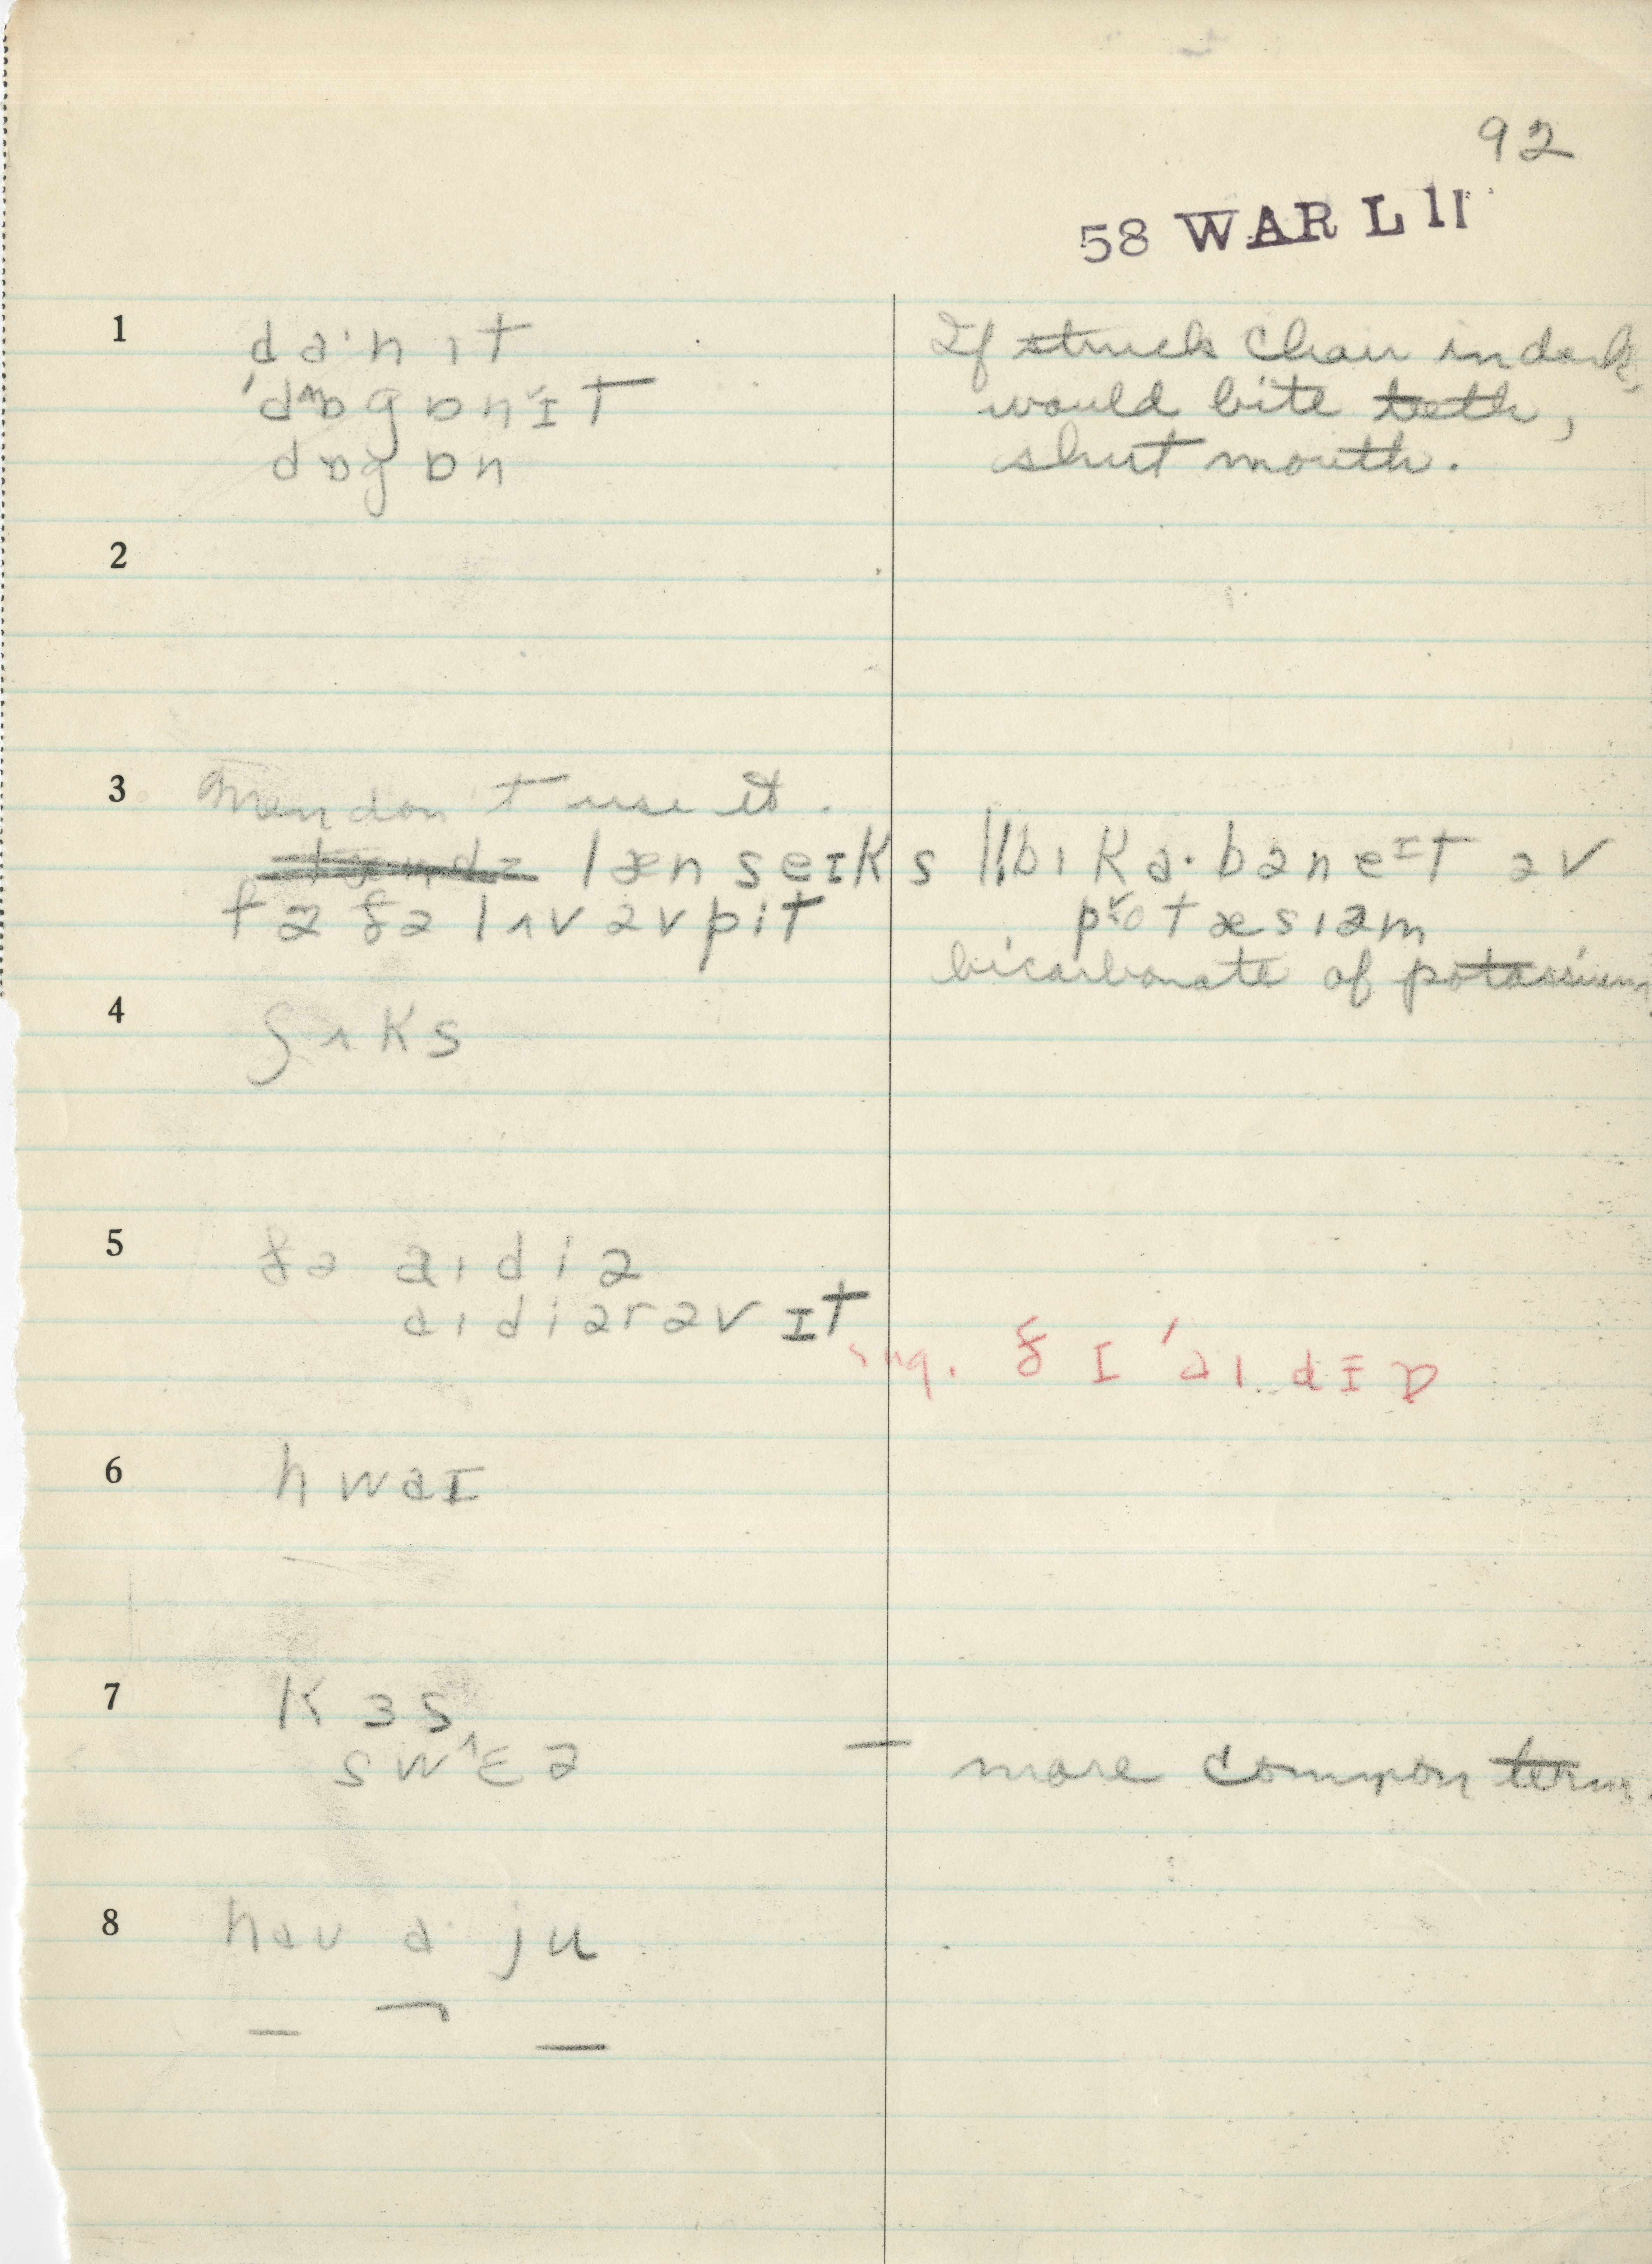 92
58 WAR L 11
1 da·nɪt If struck chair in dark,
ˈdɒgɒnɪt would bite teeth,
dɒgɒn shut mouth.
2
3 Men don't use it.
lænseɪks || bɪka·bəneɪt əv
fə ðə lʌv əv pit pətæsɪəm
bicarbonate of potassium
4 ʃʌks
5 ðə aɪdiə
aɪdiərəv ɪt
sug. ðɪ ˈaɪdɪɒ
6 hwaɪ
7 kɜs
swɛə — more common term.
8 hau a ju